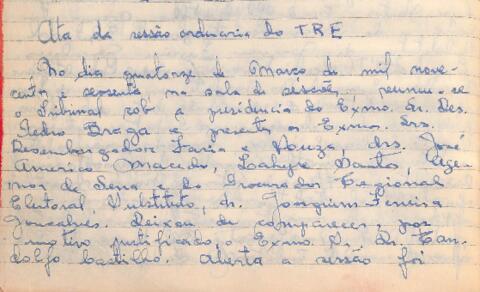 Ata da sessão ordinaria do TRE
No dia quatorze de Março de mil nove-
centos e sessenta na sala de sessões, reuniu-se
o Tribunal sob a presidencia do Exmo. Sr. Des.
Pedro Braga e presentes os Exmos. Srs.
Desembargador Faria e Souza, drs. José
Americo Macedo, Lahyre Santos,
de Sena e do Procurador Regional
Eleitoral, Substituto, dr. Joaquim Ferreira
Gonçalves. Deixou de comparecer, por
motivo justificado, o Exmo. Sr. Des. Can-
dolfo Castilho. Aberta a sessão foi